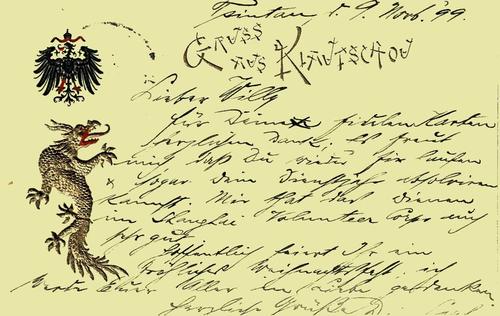 Tsintau d. 9. Novb. '99.
Gruss aus Kiautschou
Lieber Willy
Für Deine fidelen Karten
herzlichen Dank, es freut
mich daß Du wieder für
sogar dein Dienstjahr absolviren
kannst. Mir hat das Dienen
im Shanghai Volunteer Corps auch
sehr gut
Hoffentlich feiert Ihr ein
fröhliches Weihnachtsfest, ich
werde Euer Aller in Liebe gedenken.
Herzliche Grüße D.